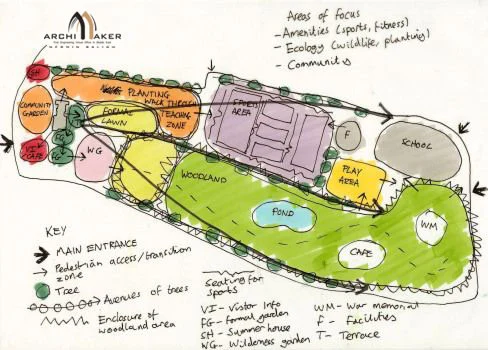 ARCHI MAKER
Areas of focus
- Amenities (sports, fitness)
- Ecology (wildlife, planting)
- Community
SH
COMMUNITY GARDEN
PLANTING
WALK THROUGH
TEACHING ZONE
FORMAL LAWN
T
FG
FG
VI
CAFE
WG
SPORTS AREA
F
SCHOOL
WOODLAND
PLAY AREA
POND
WM
CAFE
KEY
MAIN ENTRANCE
Pedestrian access/transition zone
Tree
Avenues of trees
Enclosure of woodland area
Seating for sports
VI - Visitor Info
FG - formal garden
SH - Summerhouse
WG - Wilderness garden
WM - War memorial
F - Facilities
T - Terrace